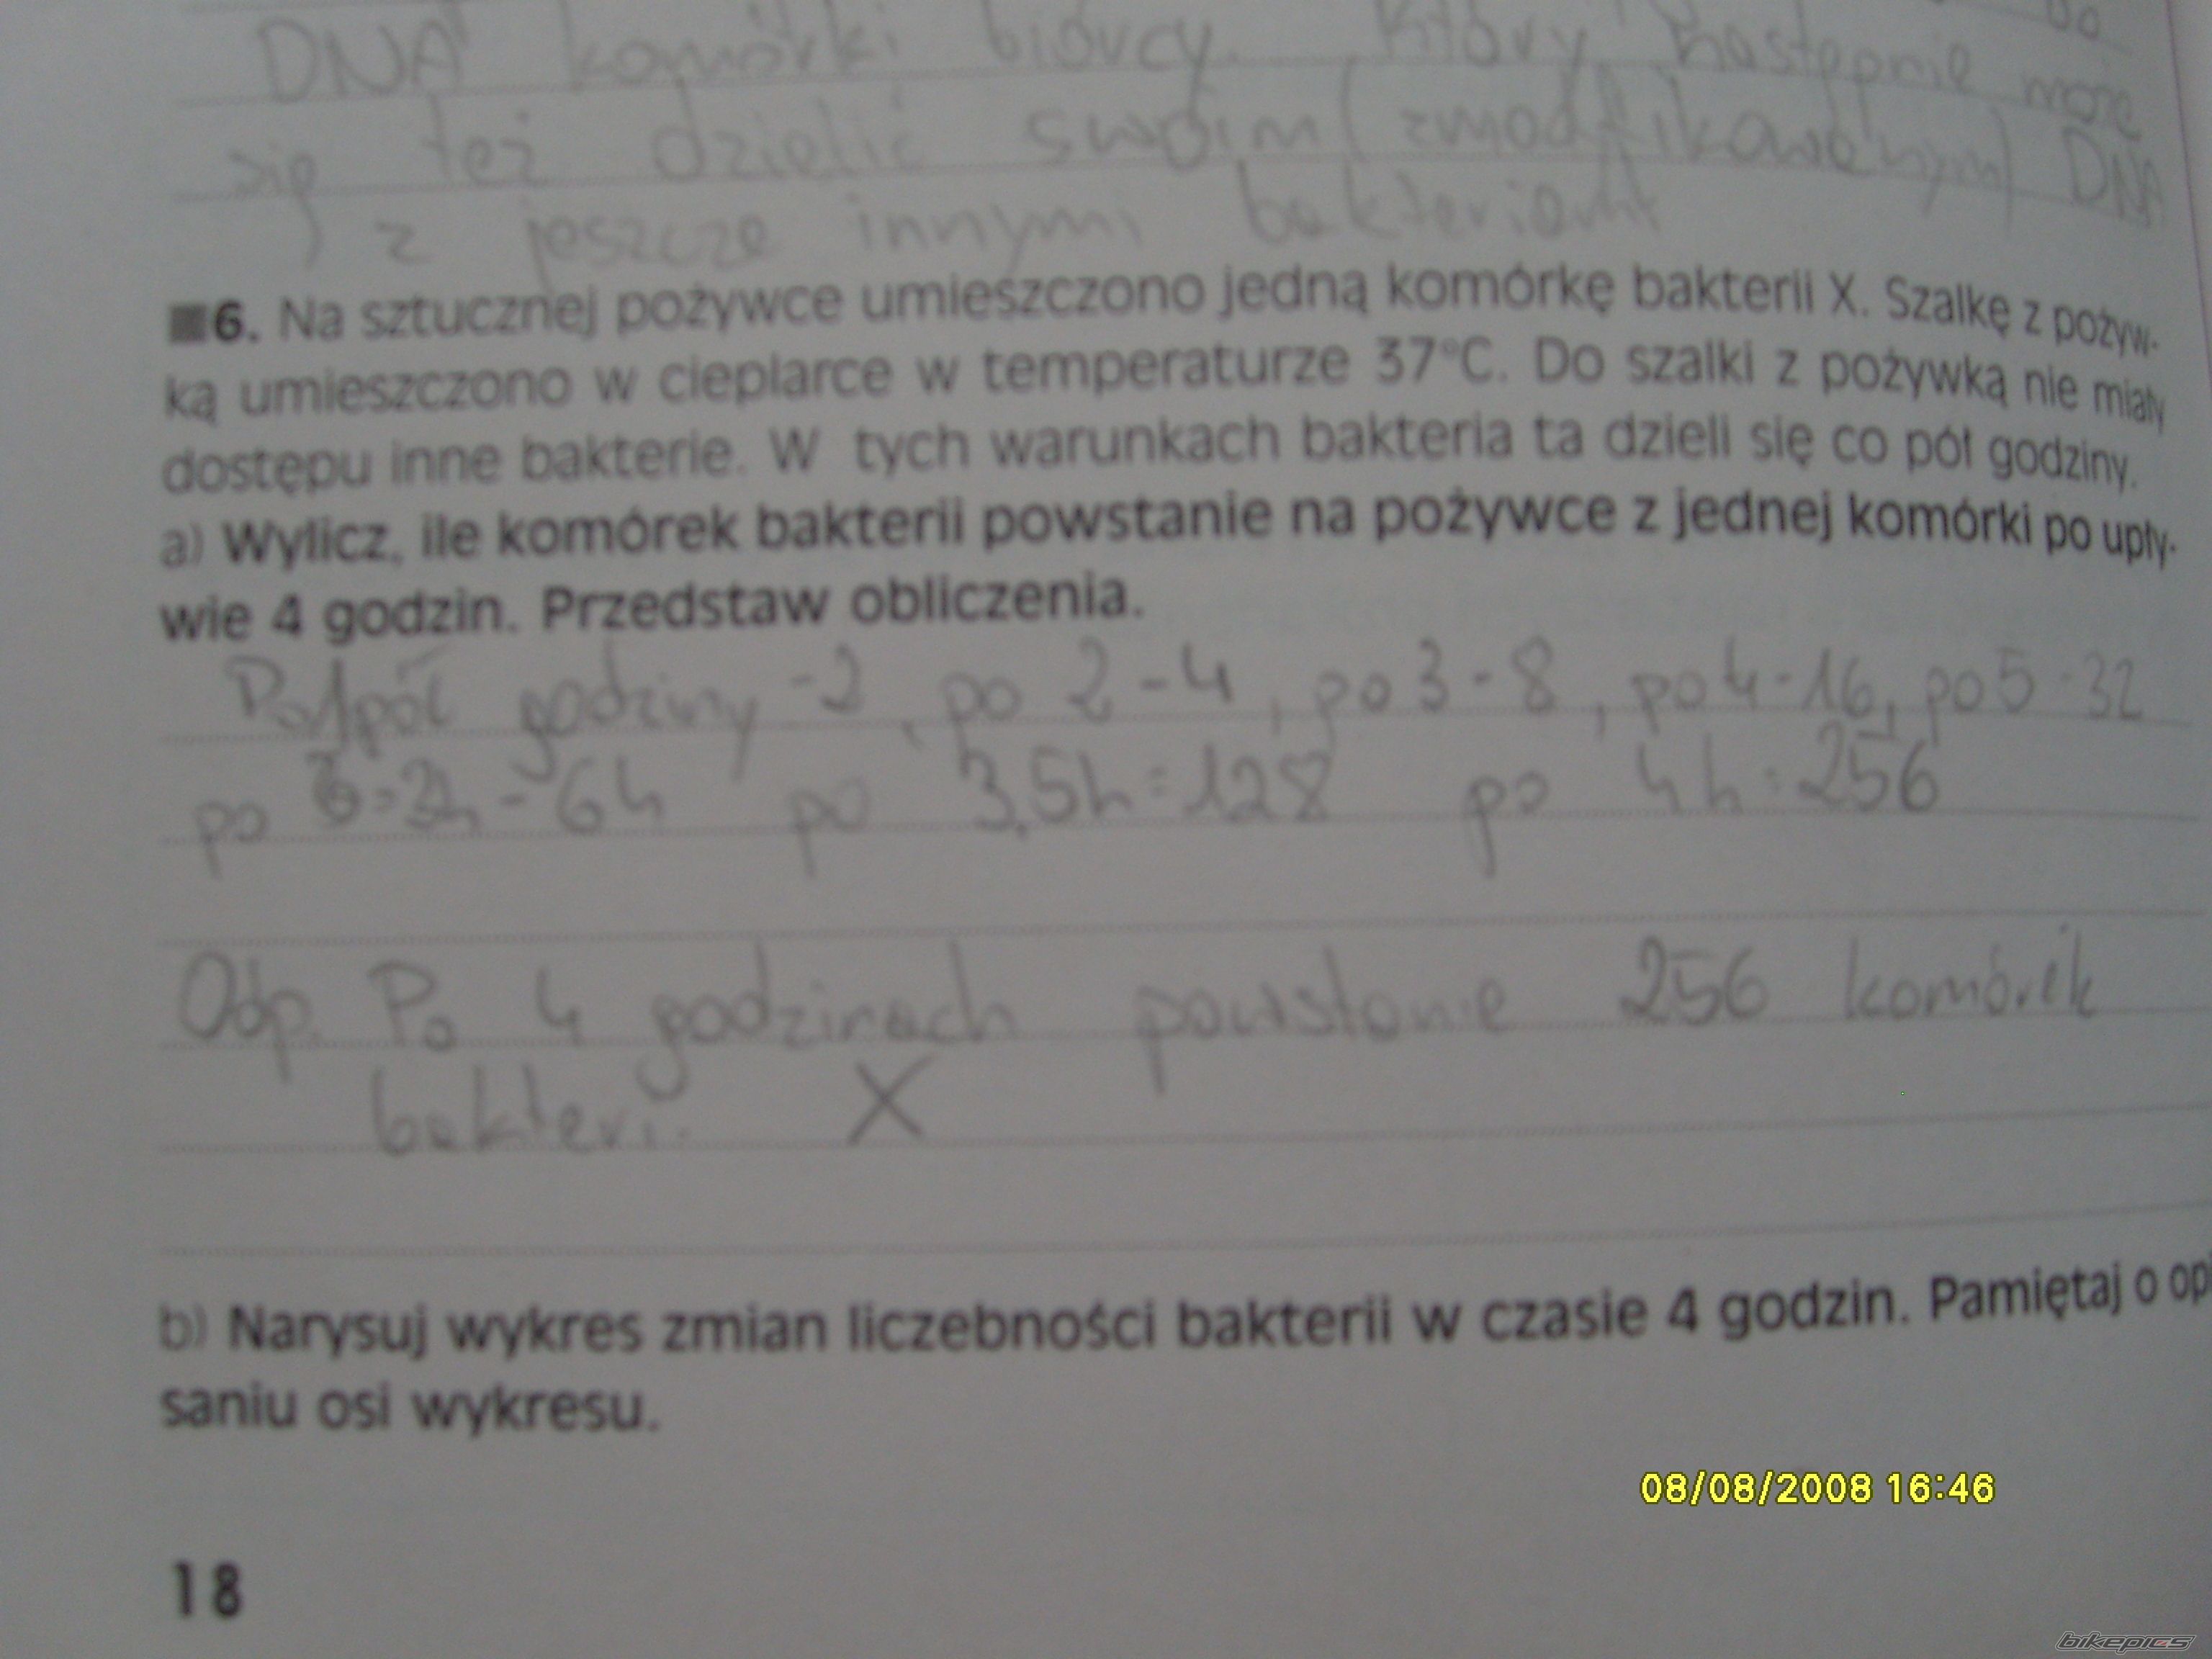 DNA komórki biorcy. Który następnie może
się też dzielić swoim (zmodyfikowanym) DNA
z jeszcze innymi bakteriami
6. Na sztucznej pożywce umieszczono jedną komórkę bakterii X. Szalkę z pożyw-
ką umieszczono w cieplarce w temperaturze 37°C. Do szalki z pożywką nie miały
dostępu inne bakterie. W tych warunkach bakteria ta dzieli się co pół godziny.
a) Wylicz, ile komórek bakterii powstanie na pożywce z jednej komórki po upły-
wie 4 godzin. Przedstaw obliczenia.
Po 1 pół godziny - 2, po 2 - 4, po 3 - 8, po 4 - 16, po 5 - 32
po 6 = 3h - 64 po 3,5h = 128 po 4h = 256
Odp. Po 4 godzinach powstanie 256 komórek
bakterii X
b) Narysuj wykres zmian liczebności bakterii w czasie 4 godzin. Pamiętaj o opi
saniu osi wykresu.
08/08/2008 16:46
18
bikepics